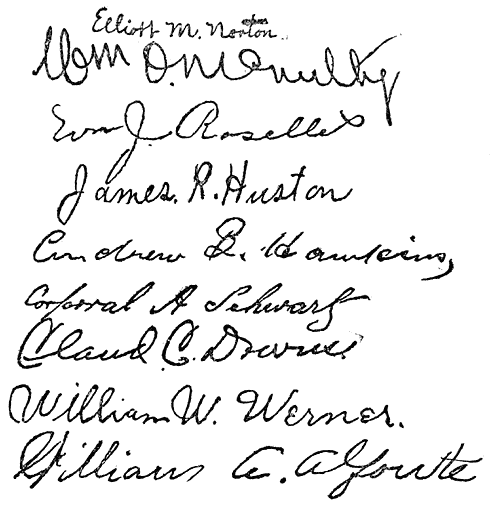 Elliott M. Norton
Wm O. McNulty
J. Roselle
James. R. Huston
Andrew B. Hawkins
Corporal A Schwarz
Claud. C. Downs
William W. Werner.
William A.